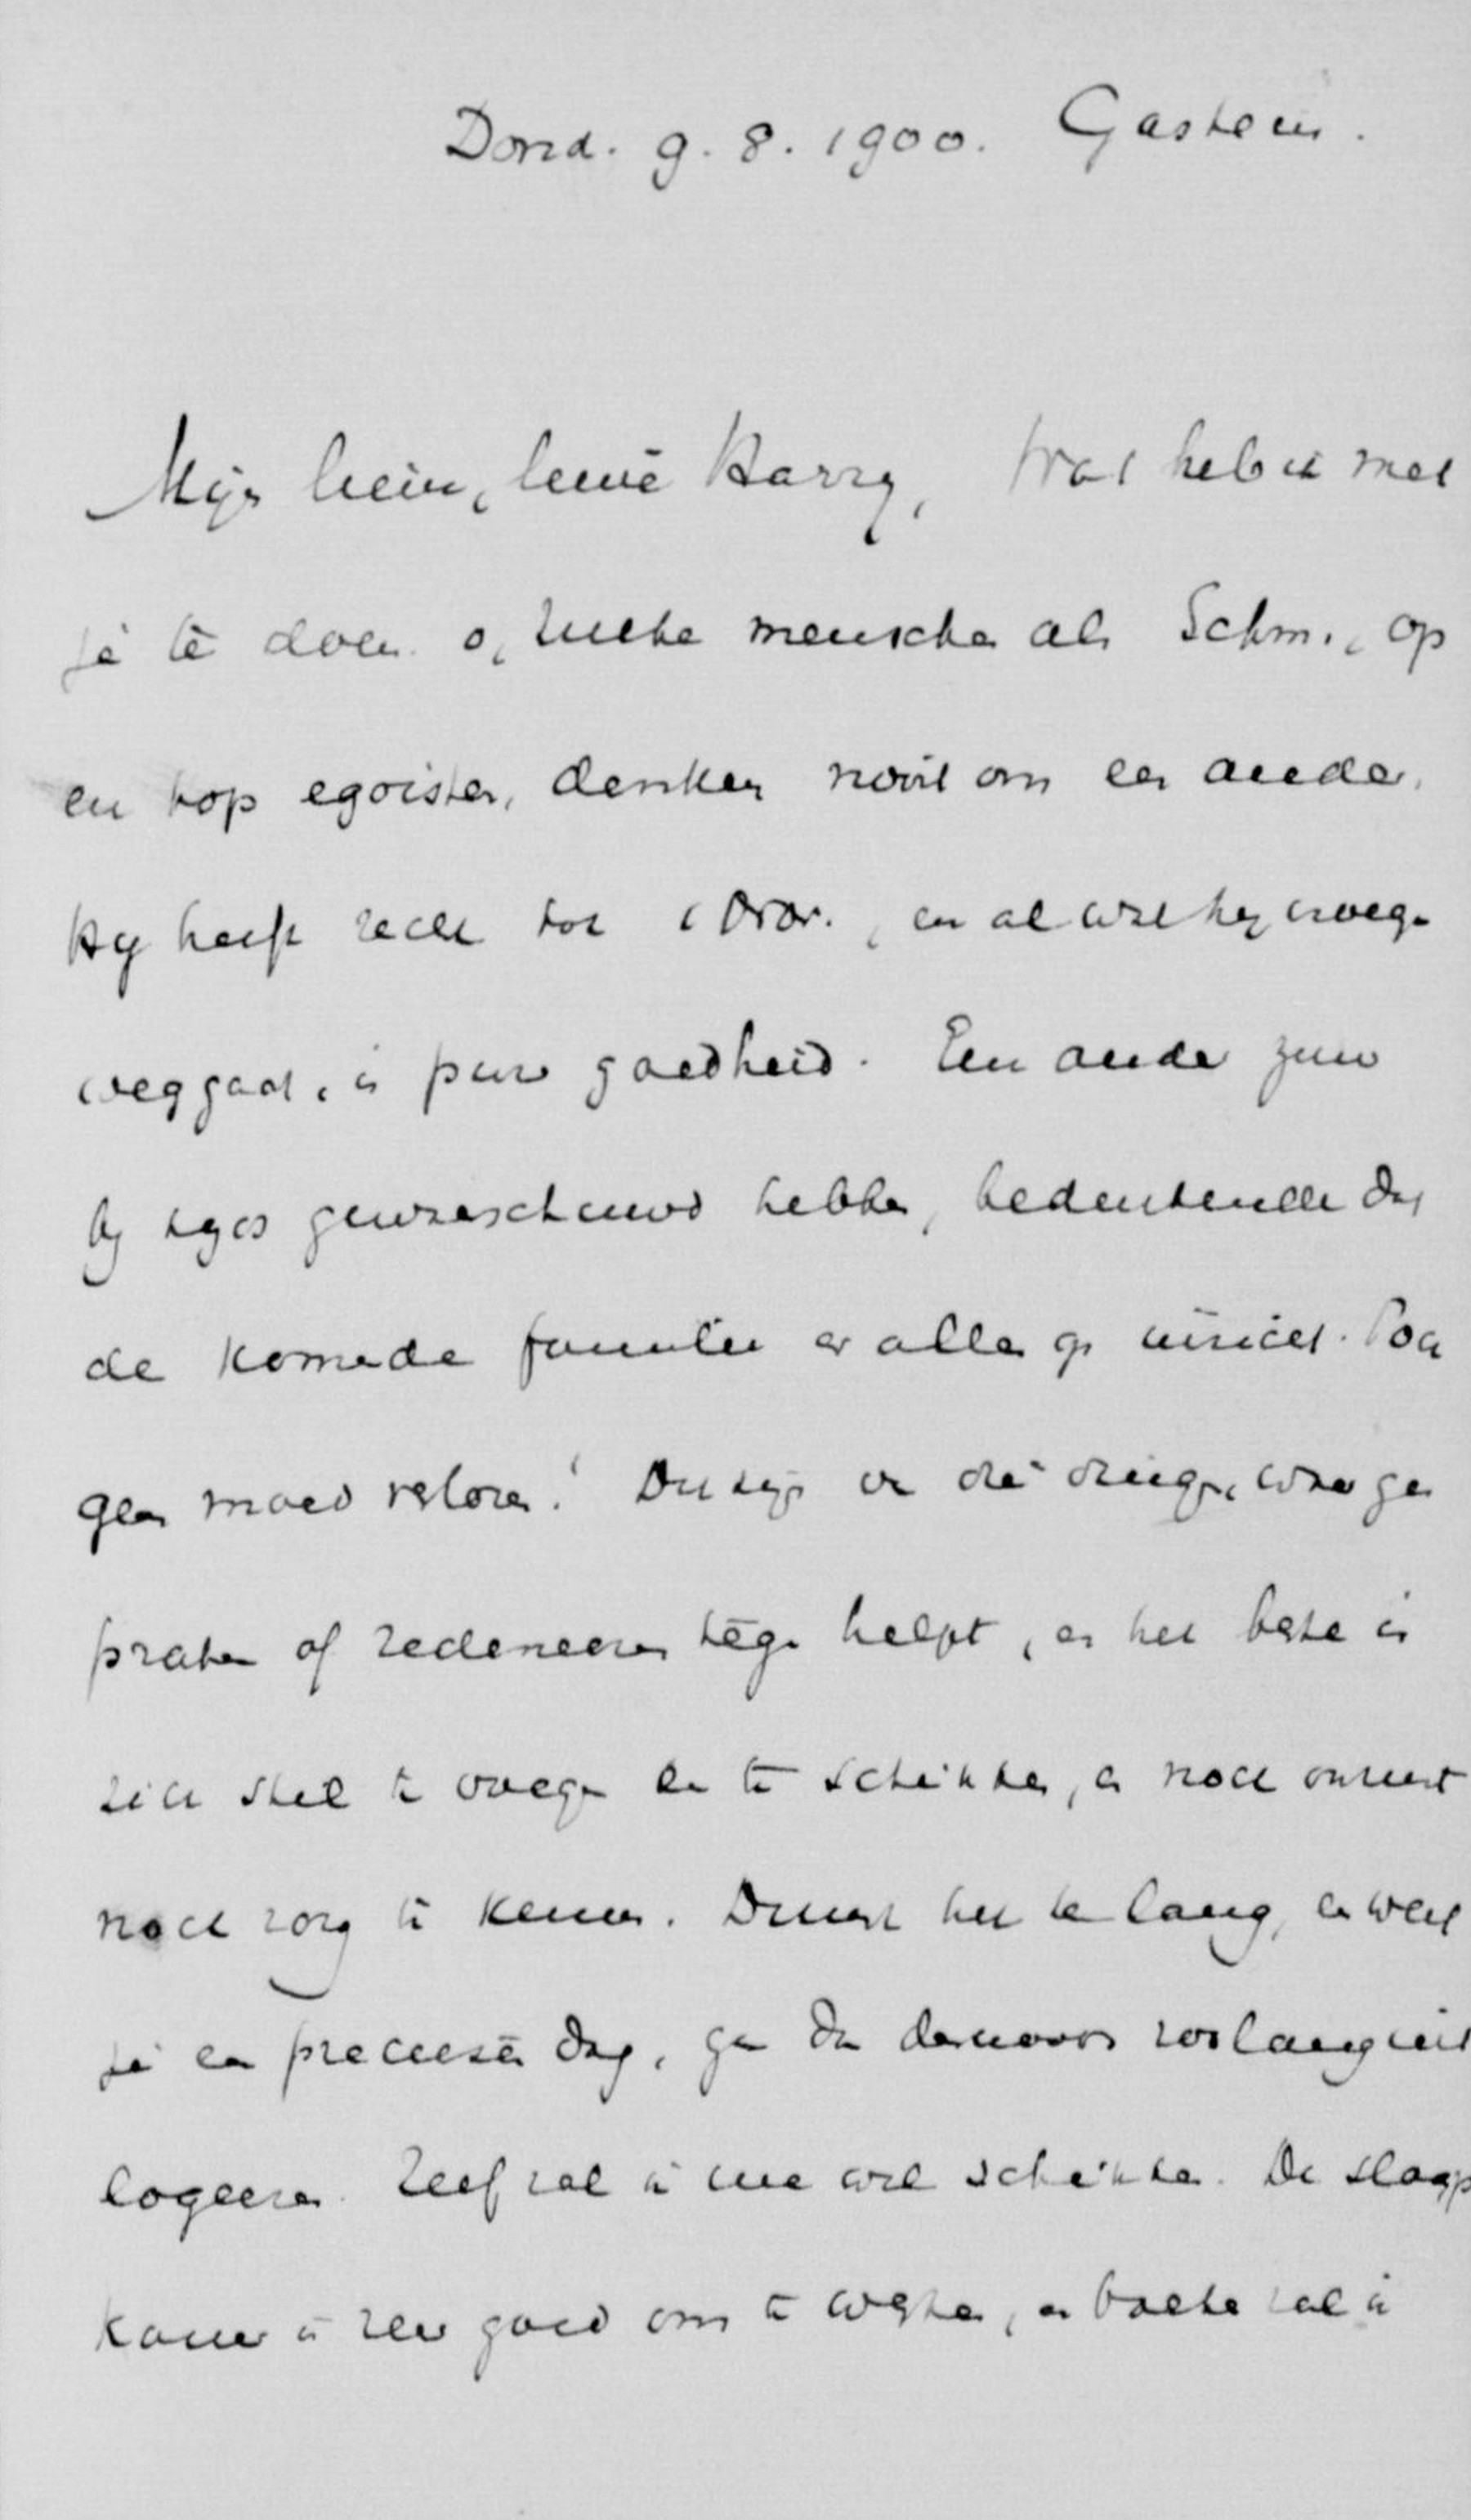 Dond. 9. 8. 1900. Gastein.
Mijn lieve, lieve Harry, Wat heb ik met
je te doen. o, zulke menschen als Schm., op
en top egoisten, denken nooit om een ander.
Hy heeft recht tot 1 Nov., en al wat hy vroeger
weggaat, is pure goedheid. Een ander zou
by tyds gewaarschuwd hebben, bedenkende dat
de komende familie er alles op inricht. Toch
geen moed verloren! Dit zyn van die dingen, waar geen
praten of redeneeren tegen helpt, en het beste is
zich stil te voegen en te schikken, en noch onrust
noch zorg te kennen. Duurt het te lang, en weet
je een preciesen dag, ga dan daarvoor zoolang uit
logeeren. Zelf zal ik me wel schikken. De slaap
kamer is zeer goed om te werken, en boeken zal ik